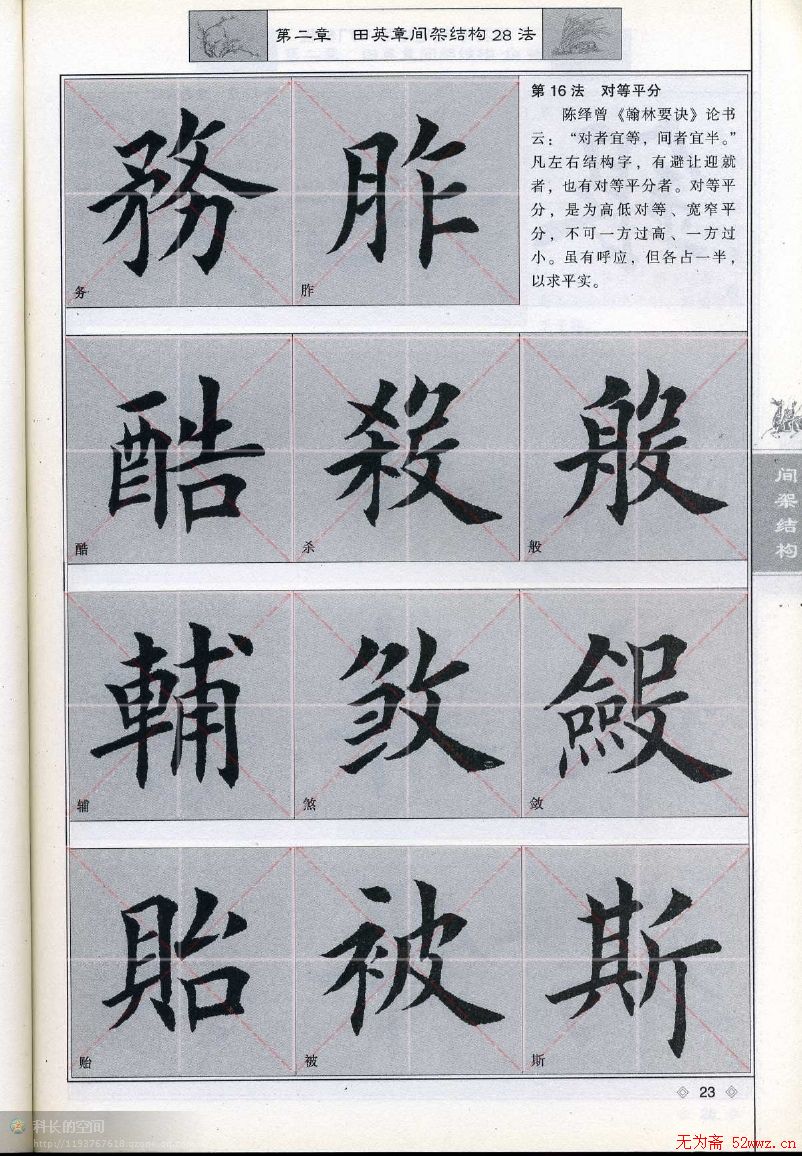 第二章 田英章间架结构28法
第16法 对等平分
陈绎曾《翰林要诀》论书
云:“对者宜等,间者宜半。”
凡左右结构字,有避让迎就
者,也有对等平分者。对等平
分,是为高低对等、宽窄平
分,不可一方过高、一方过
小。虽有呼应,但各占一半,
以求平实。
務 胙
务 胙
酷 殺 般
酷 杀 般
輔 敘 斂
辅 煞 敛
貽 被 斯
贻 被 斯
间架结构
23
科长的空间
无为斋 52wwz.cn